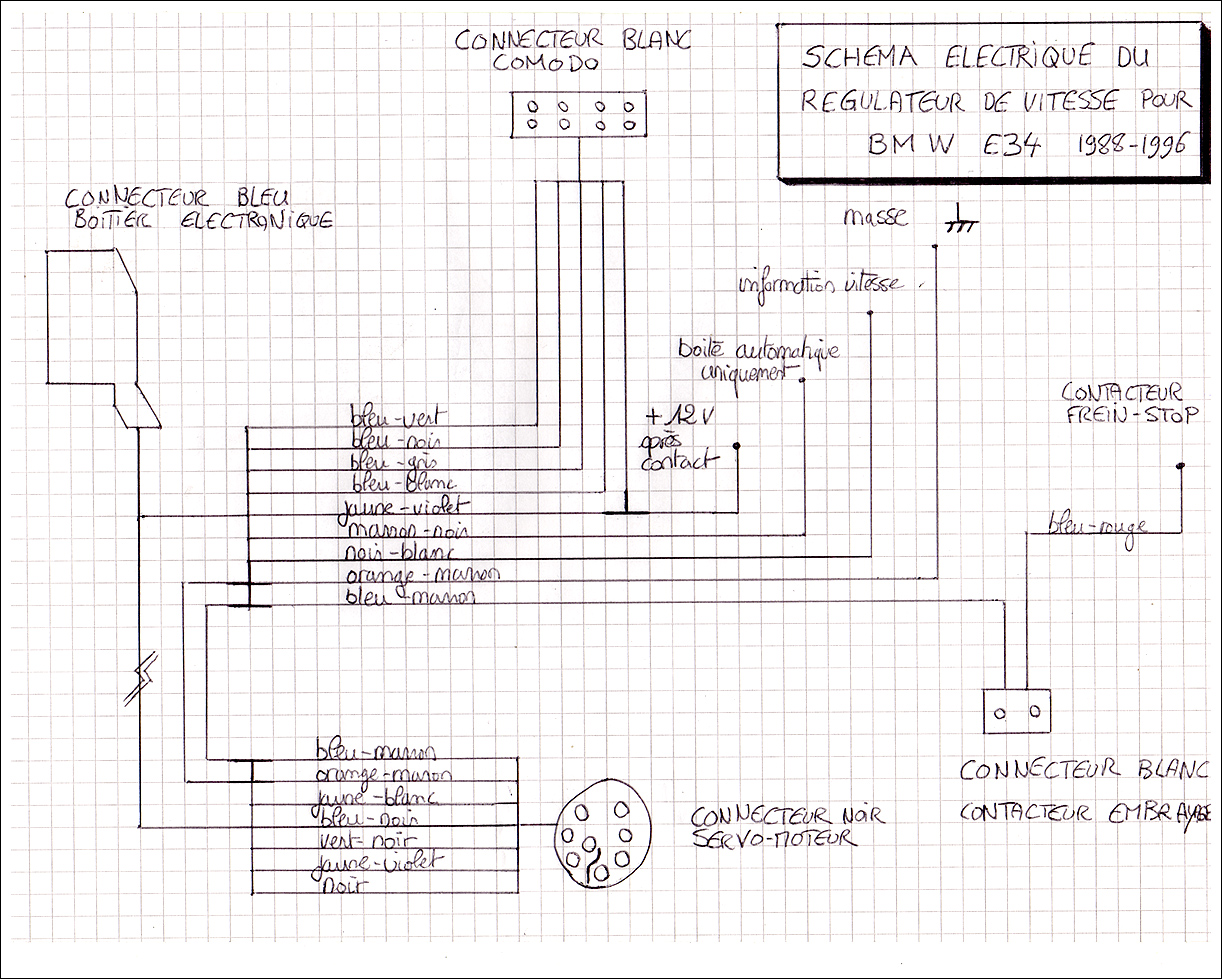 CONNECTEUR BLANC
COMODO
SCHEMA ELECTRIQUE DU
REGULATEUR DE VITESSE POUR
BMW E34 1988-1996
CONNECTEUR BLEU
BOITIER ELECTRONIQUE
masse
information vitesse
boite automatique
uniquement
+12V
après
contact
CONTACTEUR
FREIN-STOP
bleu-rouge
bleu-vert
bleu-noir
bleu-gris
bleu-blanc
jaune-violet
marron-noir
noir-blanc
orange-marron
bleu-marron
bleu-marron
orange-marron
jaune-blanc
bleu-noir
vert-noir
jaune-violet
noir
CONNECTEUR NOIR
SERVO-MOTEUR
CONNECTEUR BLANC
CONTACTEUR EMBRAYAGE